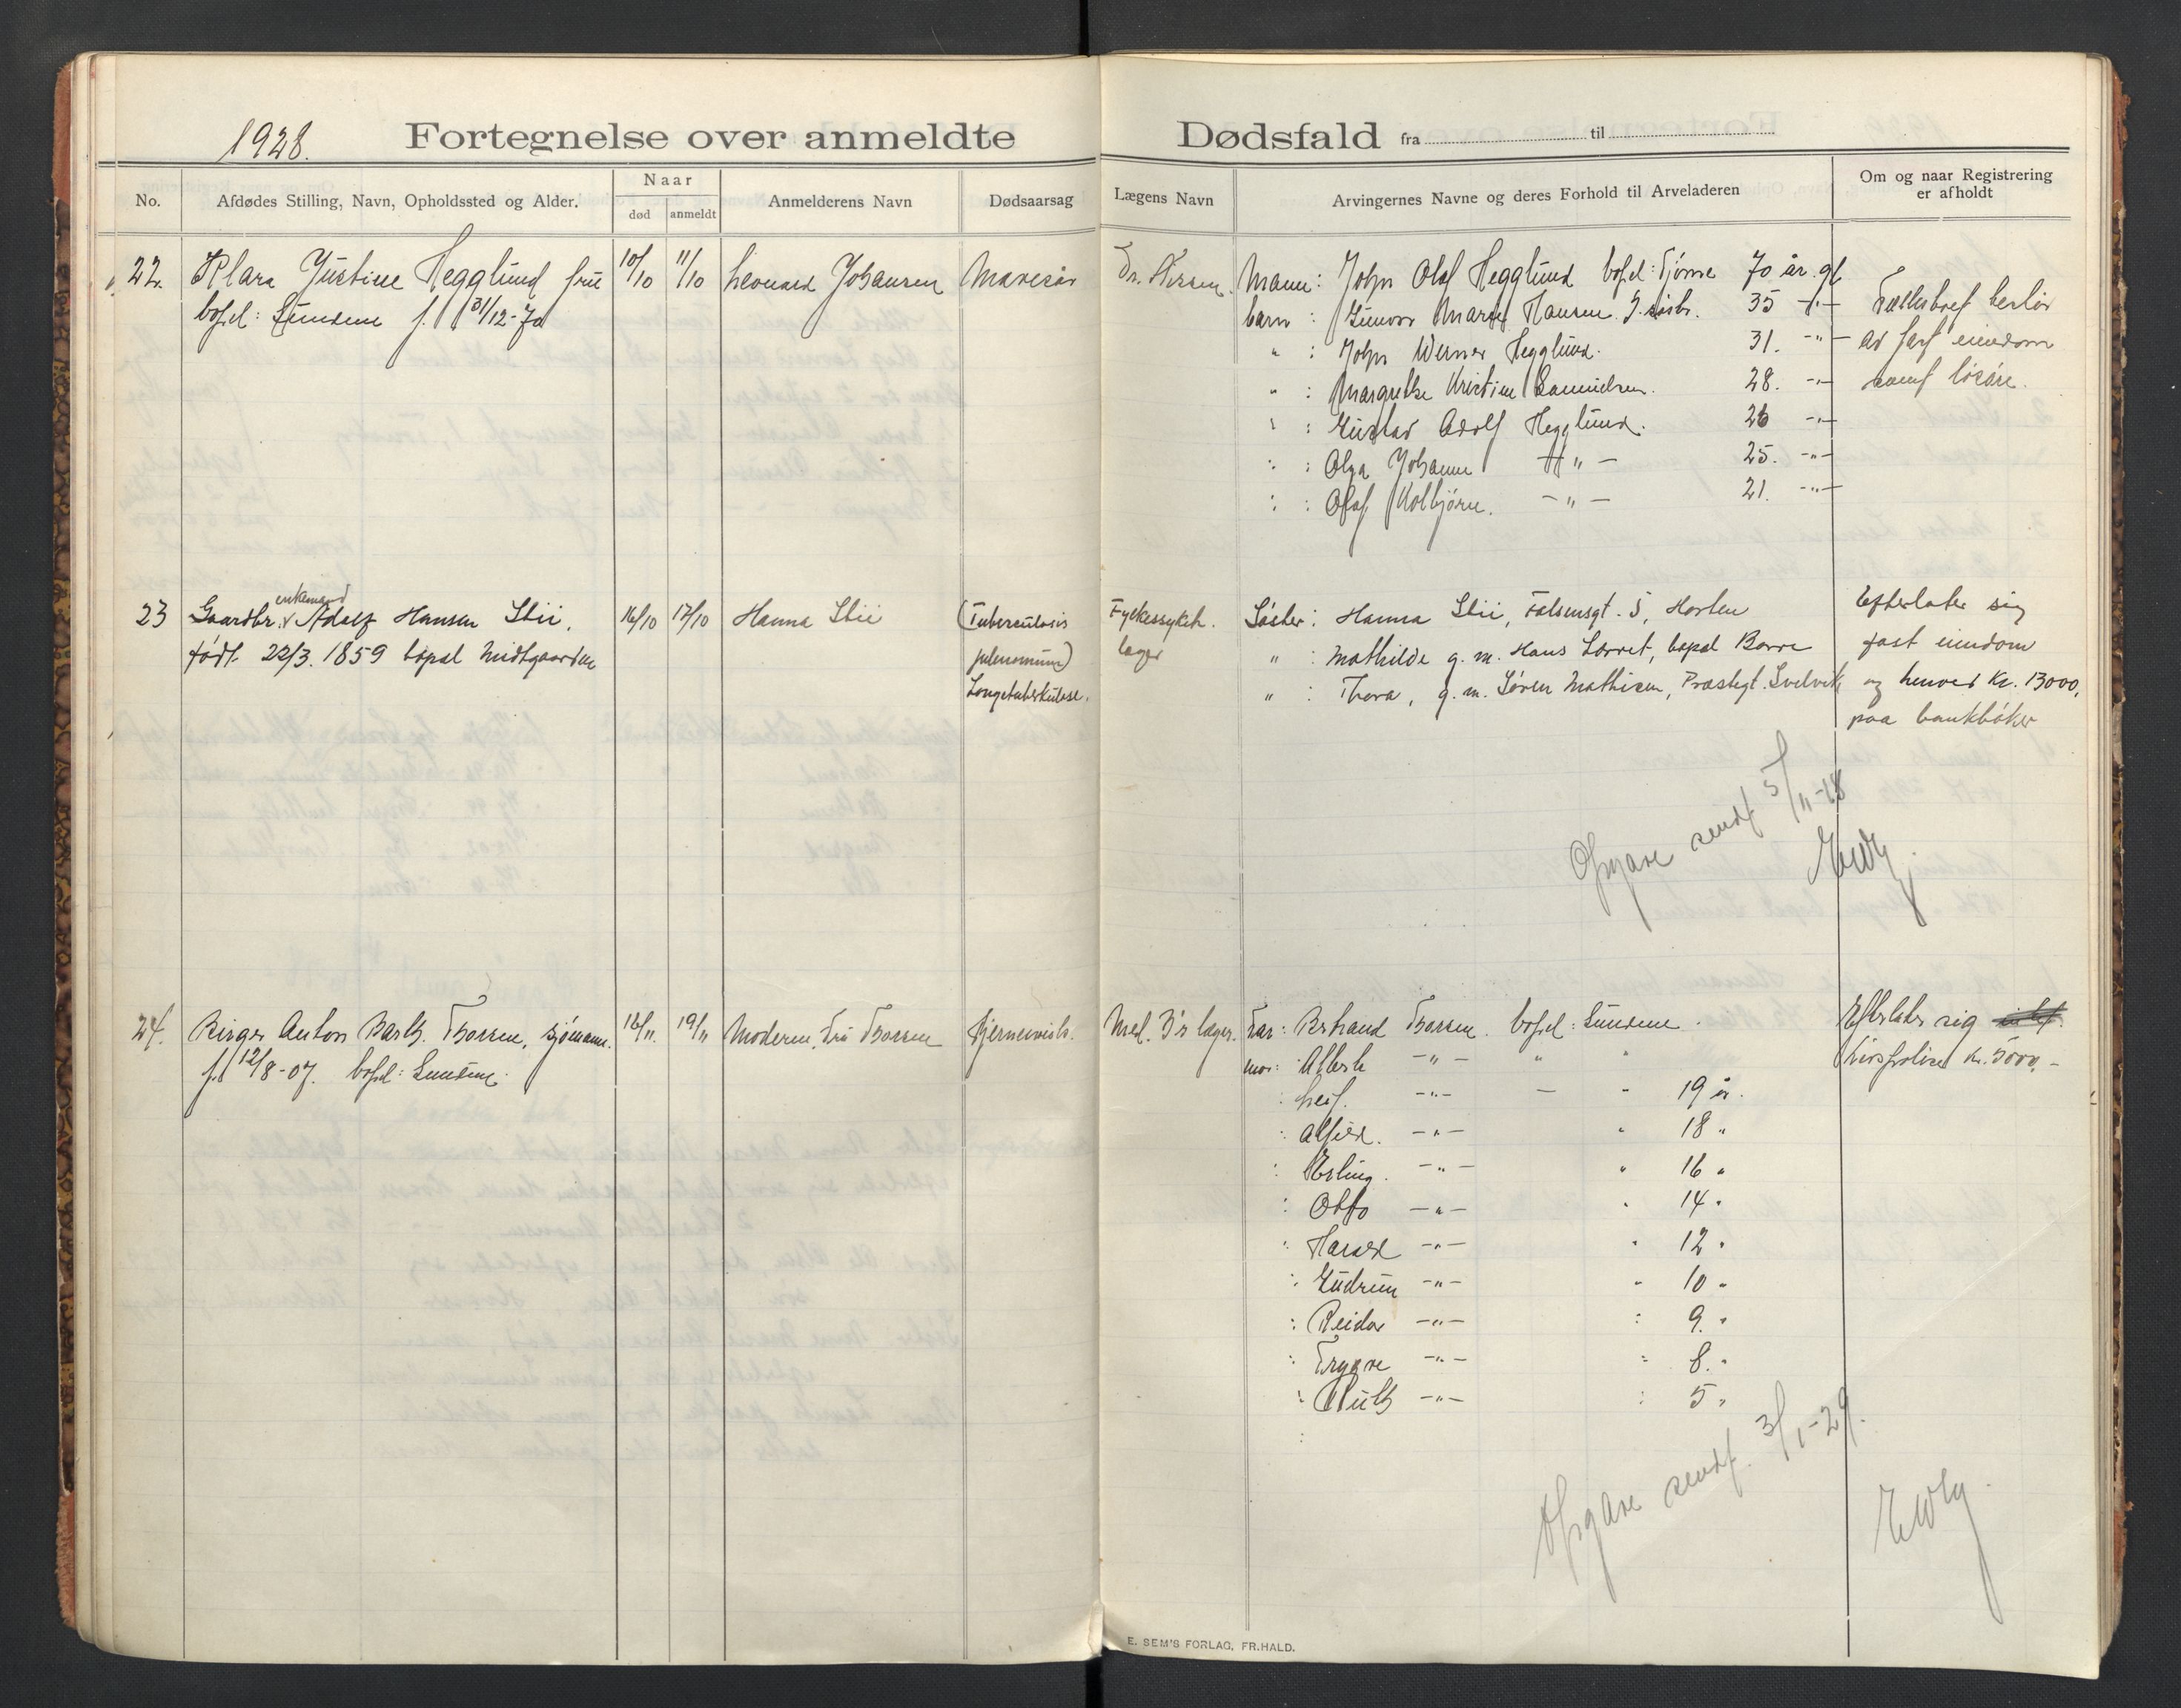 1928.
Fortegnelse over anmeldte Dødsfald fra til
No.
Afdødes Stilling, Navn, Opholdssted og Alder.
Naar
død
anmeldt
Anmelderens Navn
Dødsaarsag
Lægens Navn
Arvingernes Navne og deres Forhold til Arveladeren
Om og naar Registrering
er afholdt
22. Klara Justine Hegglund frue 10/10 11/10 Leonard Johansen Mavesår
bopel: Sundene f. 31/12-70
Mann: John Olaf Hegglund bopel: Tjøme 70 år gl.
barn : Gunvor Marie Hansen 35 -"-
" : John Werner Hegglund. 31. -"-
" : Margrethe Kristine 28. -"-
" : Gustav Adolf Hegglund. 26 -"-
" : Olga Johanne -"- 25. -"-
" : Olaf Kolbjørn. -"- 21. -"-
av fast eiendom
samt løsøre.
23 Gaardbr. enkemand Adolf Hansen Stii. 16/10 17/10 Hanna Stii (Tuberculosis
født 22/3. 1859 bopæl Midtgaarden
pulmonum)
Longetuberkulose.
Fylkessykeh.
læger
Søster: Hanna Stii, Falsensgt. 5, Horten
" : Mathilde g. m. Hans Lørret, bopæl Borre
" : Thora, g. m. Søren Mathisen, Præstegt. Svelvik
Efterlater sig
fast eiendom
og henved Kr. 13000,
paa bankbøker
Opgave sendt 5/11-28
24. Birger Anton Barth. Thorsen, sjømann. 18/11. 19/11 Moderen, Fru Thorsen Hjernerevist.
f. 12/8-07. bopel: Sundene.
Far: Bertrand Thorsen. bopel: Sundene.
mor: Alberte -"- " "
: Leif. -"- - " 19 år.
: Alfred. -"- " 18 "
: Erling. -"- " 16 "
: Otto -"- " 14 "
: Harald -"- " 12 "
: Gudrun -"- " 10 "
: Reidar -"- : 9. "
: Trygve -"- " 8. "
: Ruth -"- : 5 "
Efterlater sig
Livspolise kr. 5000,-
Opgave sendt. 3/1-29.
E. SEM'S FORLAG, FR.HALD.